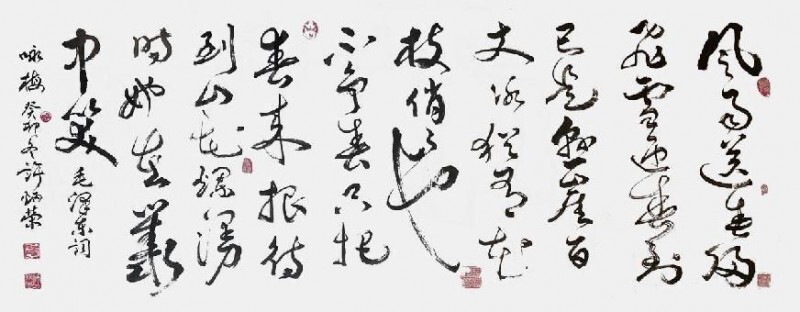 风雨送春归
飛雪迎春到
已是懸崖百
丈冰犹有花
枝俏俏也
不争春只把
春来报待
到山花爛漫
時她在叢
中笑
毛澤东词
咏梅 癸卯冬许炳荣